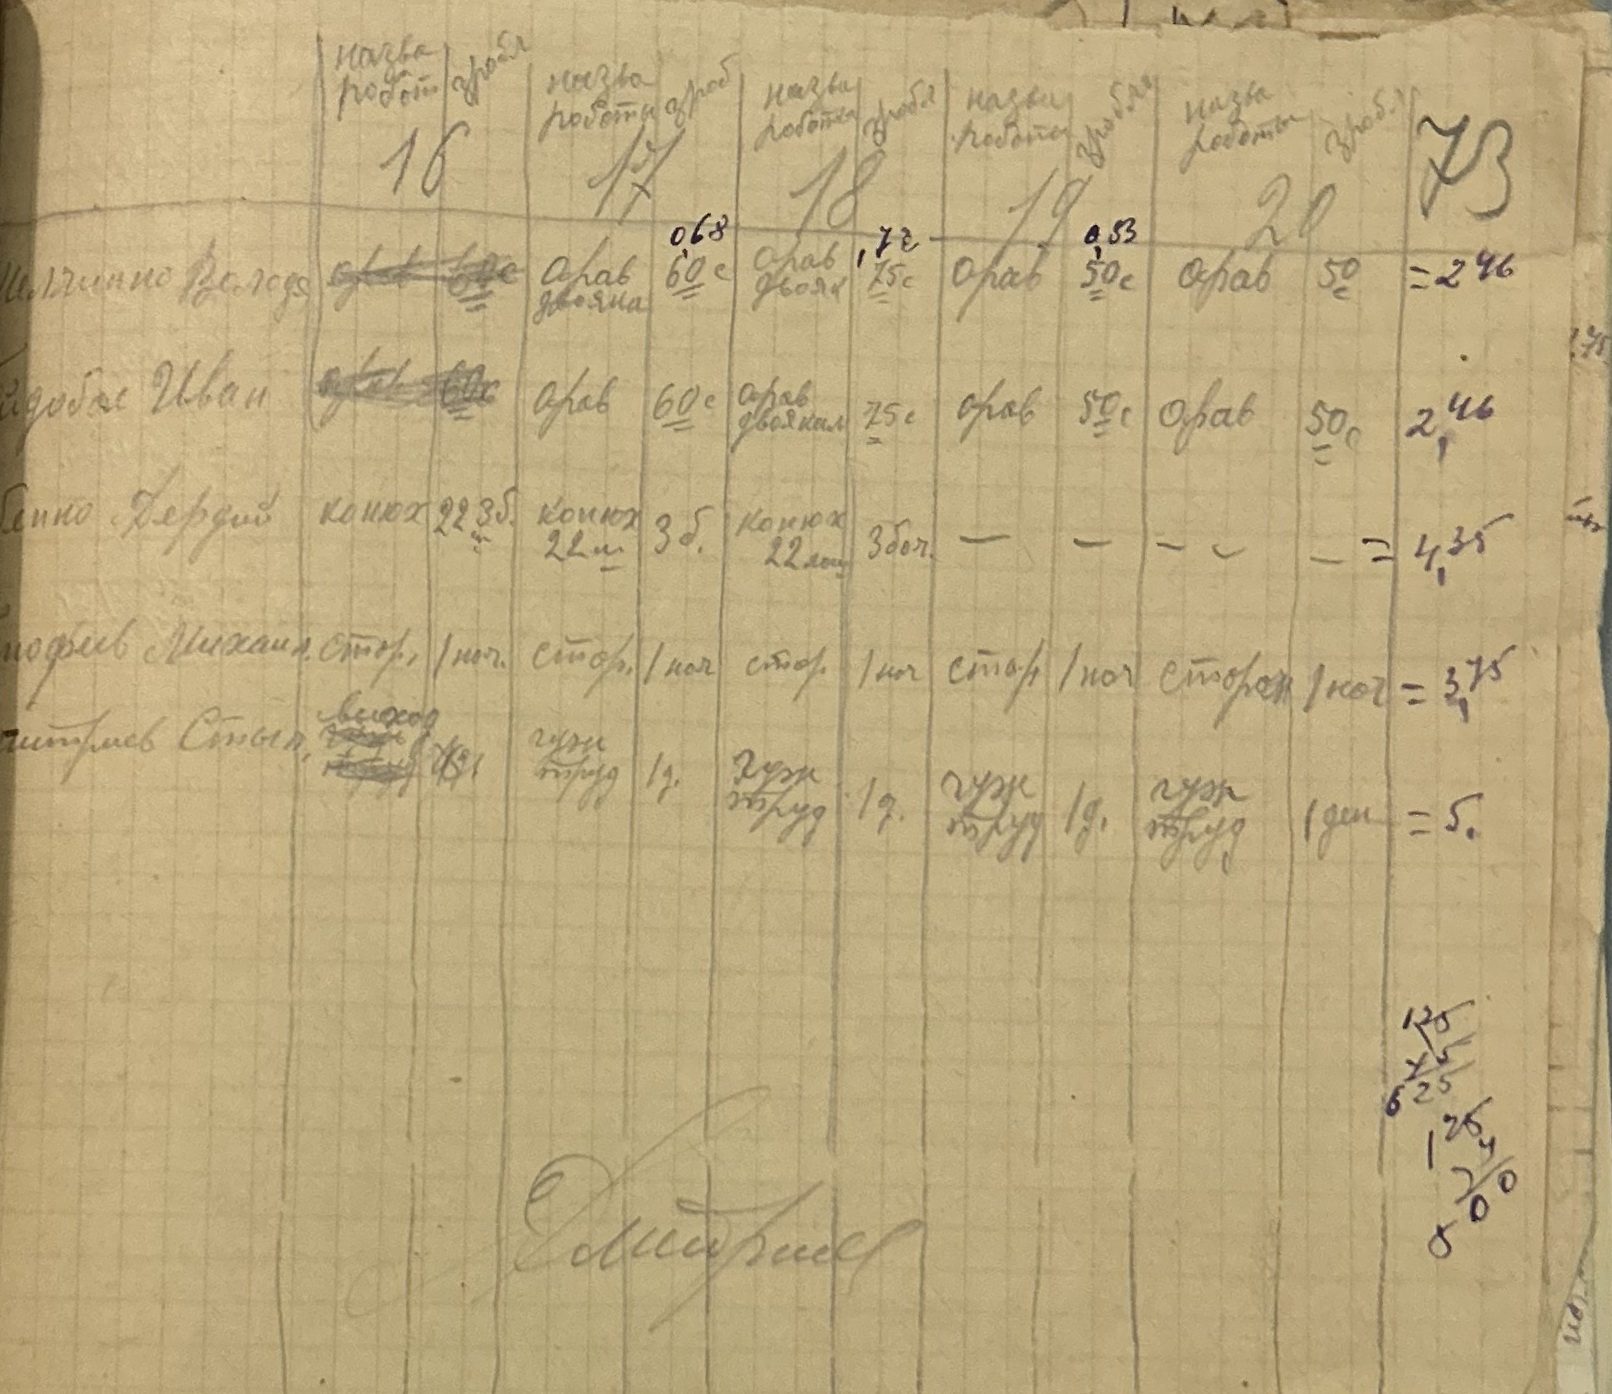 назва робот зробл назва роботи зроб назва роботи зробл назва роботи зробл назва роботи зробл 73
16 17 18 19 20
0,68 ,72 0,53
Володя орав 60с орав двояка 60с орав двояк 75с орав 50с орав 50с = 2 46
Иван орав 60с орав 60с орав двоякам 75с орав 50с орав 50с 2,46
конюх 22 3б. конюх 22 ш 3б. конюх 22 лош 3боч. — — — — — = 4,35
Михаил. стор, 1 ноч. стор. 1 ноч стор. 1 ноч стор. 1 ноч сторож 1 ноч = 3,75
выход гуж труд 1д. гуж труд 1д. гуж труд 1д. гуж труд 1 ден = 5.
125
5
625
1 25
4
500